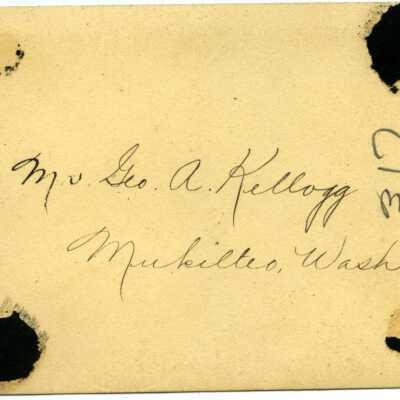 Mr. Geo. A. Kellogg
Mukilteo, Wash